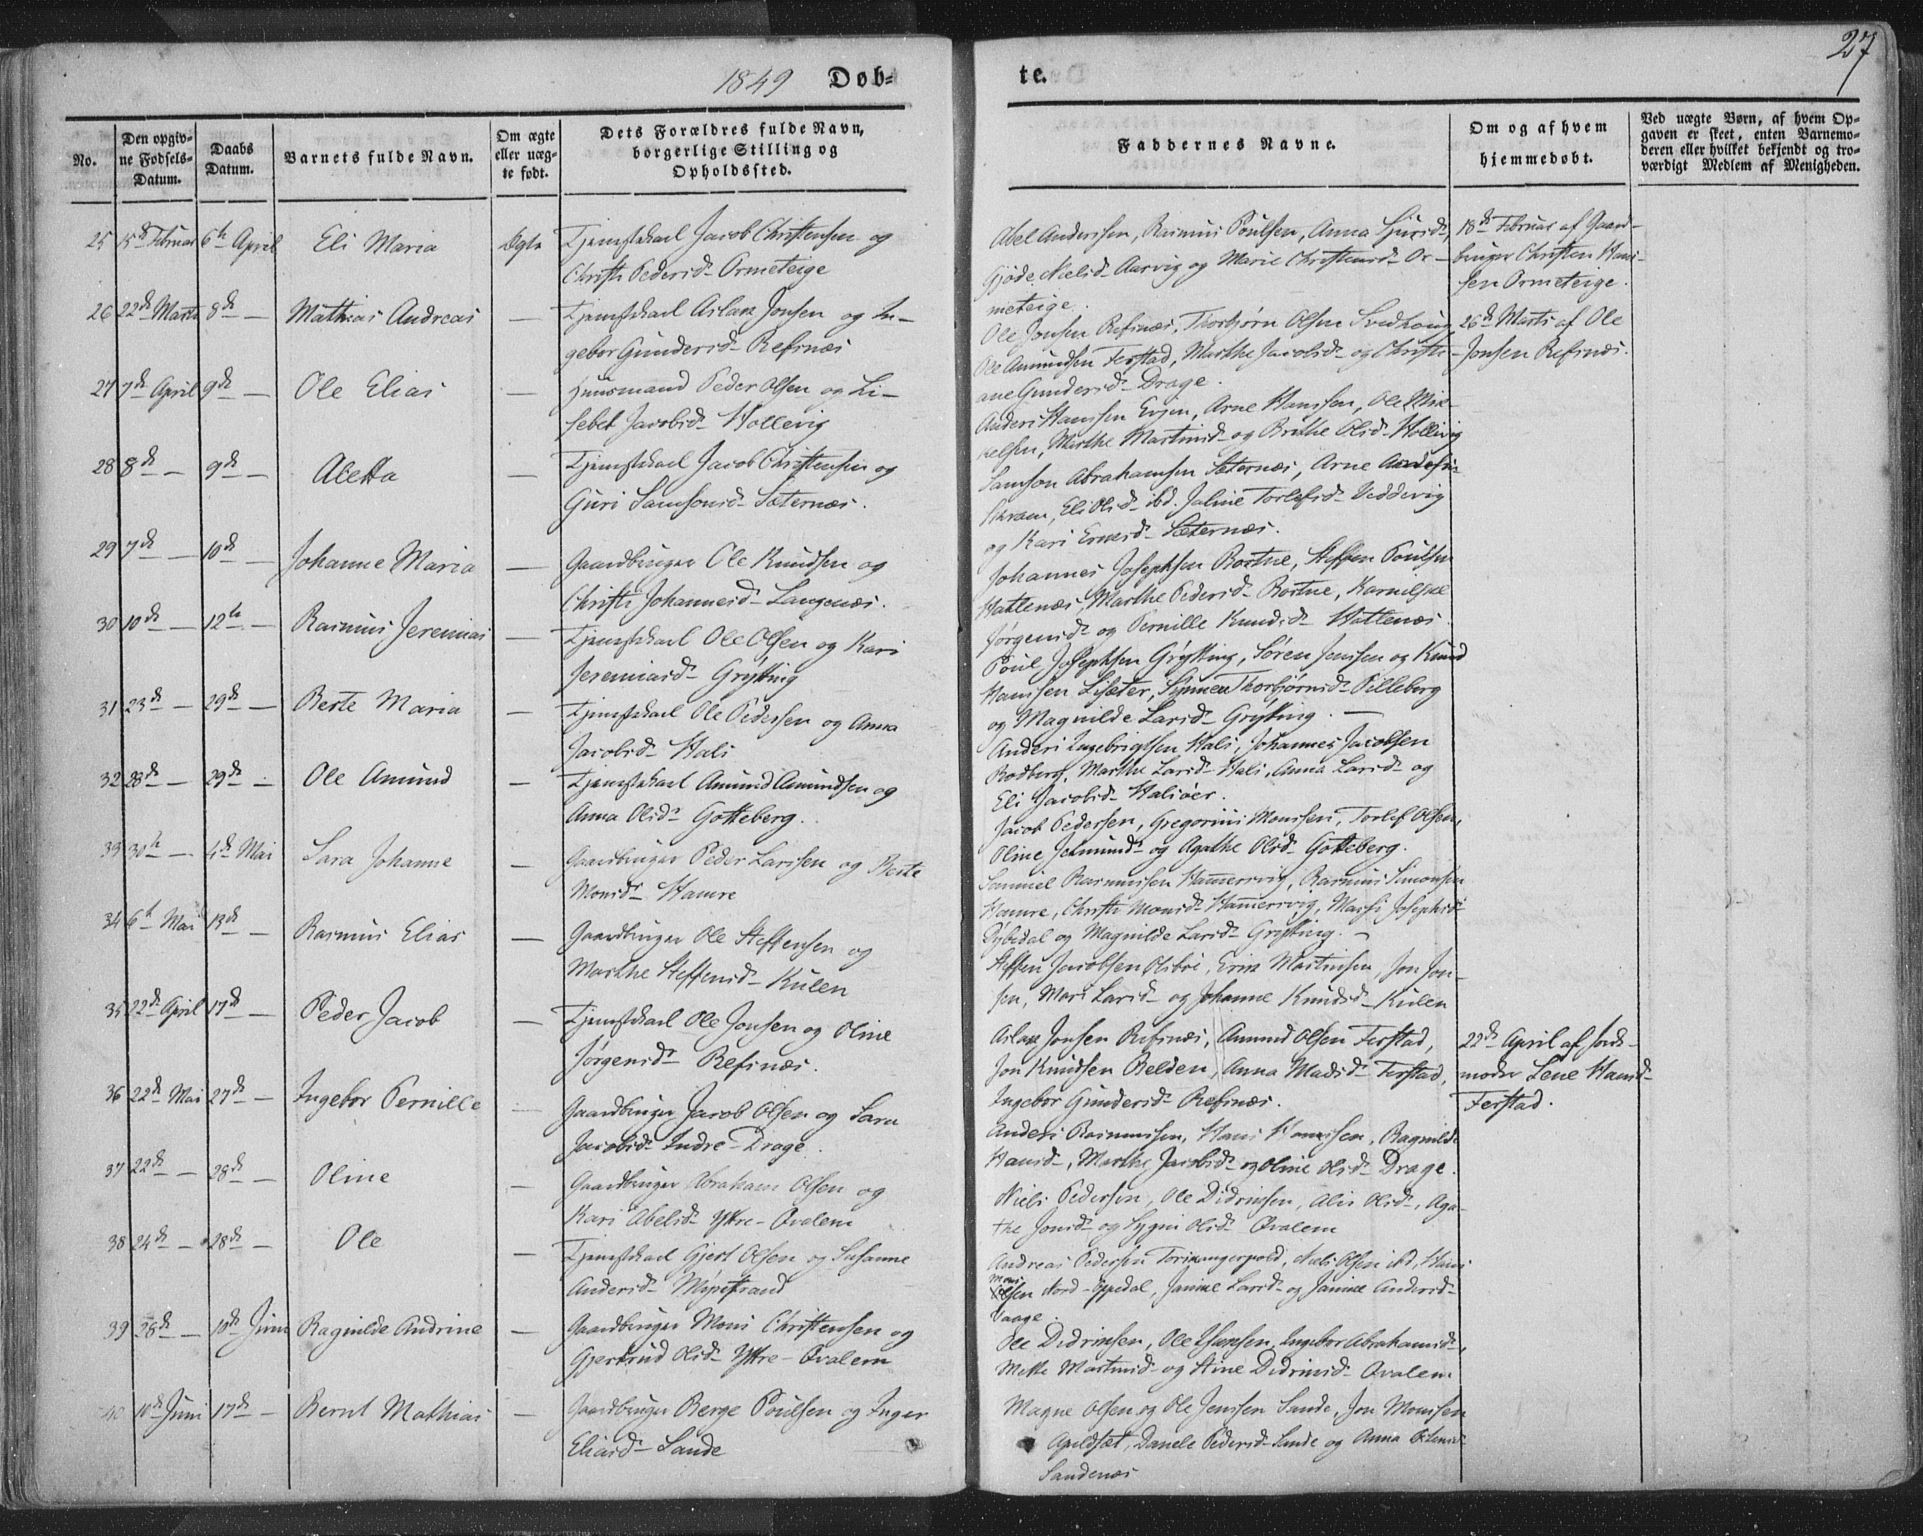 1849 Døb-
No.
Den opgiv-
ne Fødsels-
Datum.
Daabs
Datum.
Barnets fulde Navn.
Om ægte
eller uæg-
te født.
Dets Forældres fulde Navn,
borgerlige Stilling og
Opholdssted.
25 15de Februar 6te April Eli Maria Ægte Tjenestekarl Jacob Christensen og
Christi Pedersd. Ormeteige
26 22de Marts 8de — Mathias Andreas — Tjenestekarl Aslak Jonsen og In-
gebor Gundersd. Refsnæs
27 7de April 9de — Ole Elias — Huusmand Peder Olsen og Li-
sebet Jacobsd. Hollevig
28 8de — 9de — Aletta — Tjenestekarl Jacob Christensen og
Guri Samsonsd. Sæternæs.
29 7de — 10de — Johanne Maria — Gaardbruger Ole Knudsen og
Christi Johannesd. Langenæs.
30 10de — 12te — Rasmus Jeremias — Tjenestekarl Ole Olsen og Kari
Jeremiasd. Grytting
31 23de — 29de — Berte Maria — Tjenestekarl Ole Pedersen og Anna
Jacobsd. Hals
32 28de — 29de — Ole Amund — Tjenestekarl Amund Amundsen og
Anna Olsd. Gotteberg.
33 30te — 4de Mai Sara Johanne — Gaardbruger Peder Larssen og Berte
Monsd. Hamre
34 6te Mai 13de — Rasmus Elias — Gaardbruger Ole Steffensen og
Marthe Steffensd. Kulen
35 22de April 17de — Peder Jacob — Tjenestekarl Ole Jonsen og Oline
Jørgensd. Refsnæs.
36 22de Mai 27de — Ingebor Pernille — Gaardbruger Jacob Olsen og Sara
Jacobsd. Indre-Drage.
37 22de — 28de — Oline — Gaardbruger Abraham Olsen og
Kari Abelsd. Ytre-Qvalem
38 24de — 28de — Ole — Tjenestekarl Gjert Olsen og Susanne
Andersd. Myrestrand
39 28de — 10de Juni Ragnilde Andrine — Gaardbruger Mons Christensen og
Gjertrud Olsd. Ytre-Qvalem
40 10de Juni 17de — Bernt Mathias — Gaardbruger Berge Poulsen og Inger
Eliasd. Sande
te.
27
Faddernes Navne.
Om og af hvem
hjemmedøbt.
Ved uægte Børn, af hvem Op-
gaven er skeet, enten Barnemo-
deren eller hvilket bekjendt og tro-
værdigt Medlem af Menigheden.
Abel Anderssen, Rasmus Poulsen, Anna Sjursd., 18de Februar af Gaard-
Gjøde Nielsd. Aarvig og Marie Christensd. Or- bruger Christen Hans-
meteige. sen Ormeteige.
Ole Jonsen Refsnæs, Thorbjørn Olsen Svedhoug, 26de Marts af Ole
Ole Amundsen Ferstad, Marthe Jacobsd. og Christi- Jonsen Refsnæs.
ane Gundersd. Drage.
Anders Hanssen Evjen, Arne Hanssen, Ole Mik-
kelsen, Marthe Martinsd. og Brithe Olsd. Hollevig
Samson Abrahamsen Sæternæs, Arne
Eli Olsd. ibd. Torlefsd. Veddevig
og Kari Sæternæs.
Johannes Josephsen Rostne, Steffen Poulsen
Hattenæs, Marthe Pedersd. Rostne,
Jørgensd. og Pernille Knudsd. Hattenæs.
Poul Josephsen Grytting, Søren Jenssen og Knud
Hanssen Lisæter, Synneva Thorbjørnsd. Pilleberg
og Magnilde Larsd. Grytting. —
Anders Ingebrigtsen Hals, Johannes Jacobsen
Rodberg, Marthe Larsd. Hals, Anna Larsd. og
Eli Jacobsd. Halsøer.
Jacob Pedersen, Gregorius Monssen, Torlef Olsen,
Oline og Agathe Olsd. Gotteberg.
Samuel Rasmussen Hammersvig, Rasmus Simonsen
Hamre, Christi Monsd. Hammersvig, Marthe Josephsd.
Dybedal og Magnilde Larsd. Grytting. —
Steffen Jacobsen Erik Martinsen, Jon Jon-
sen, Mari Larsd. og Johanne Knudsd. Kulen
Aslak Jonsen Refsnæs, Amund Olsen Ferstad, 22de April af Jord-
Jon Knudsen Belden, Anna Madsd. Ferstad, moder Lene Hansd.
Ingebor Gundersd. Refsnæs. Ferstad.
Anders Rasmussen, Hans Hanssen, Ragnilde
Hansd., Marthe Jacobsd. og Oline Olsd. Drage.
Niels Pedersen, Ole Didriksen, Olsd., Aga-
the Jonsd. og Sygni Olsd. Qvalem
Andreas Pedersen Torskangerpold, Niels Olsen ibd, Hans
Mons
Olsen Nord-Oppedal, Janikke Larsd. og Janikke Andersd.
Vaage.
Ole Didriksen, Ole Hanssen, Ingebor Abrahamsd.,
Mette Martinsd. og Stine Didriksd. Qvalem
Magne Olsen og Ole Jenssen Sande, Jon Monssen
Apeldsæt, Danele Pedersd. Sande og Anna
Sandenæs